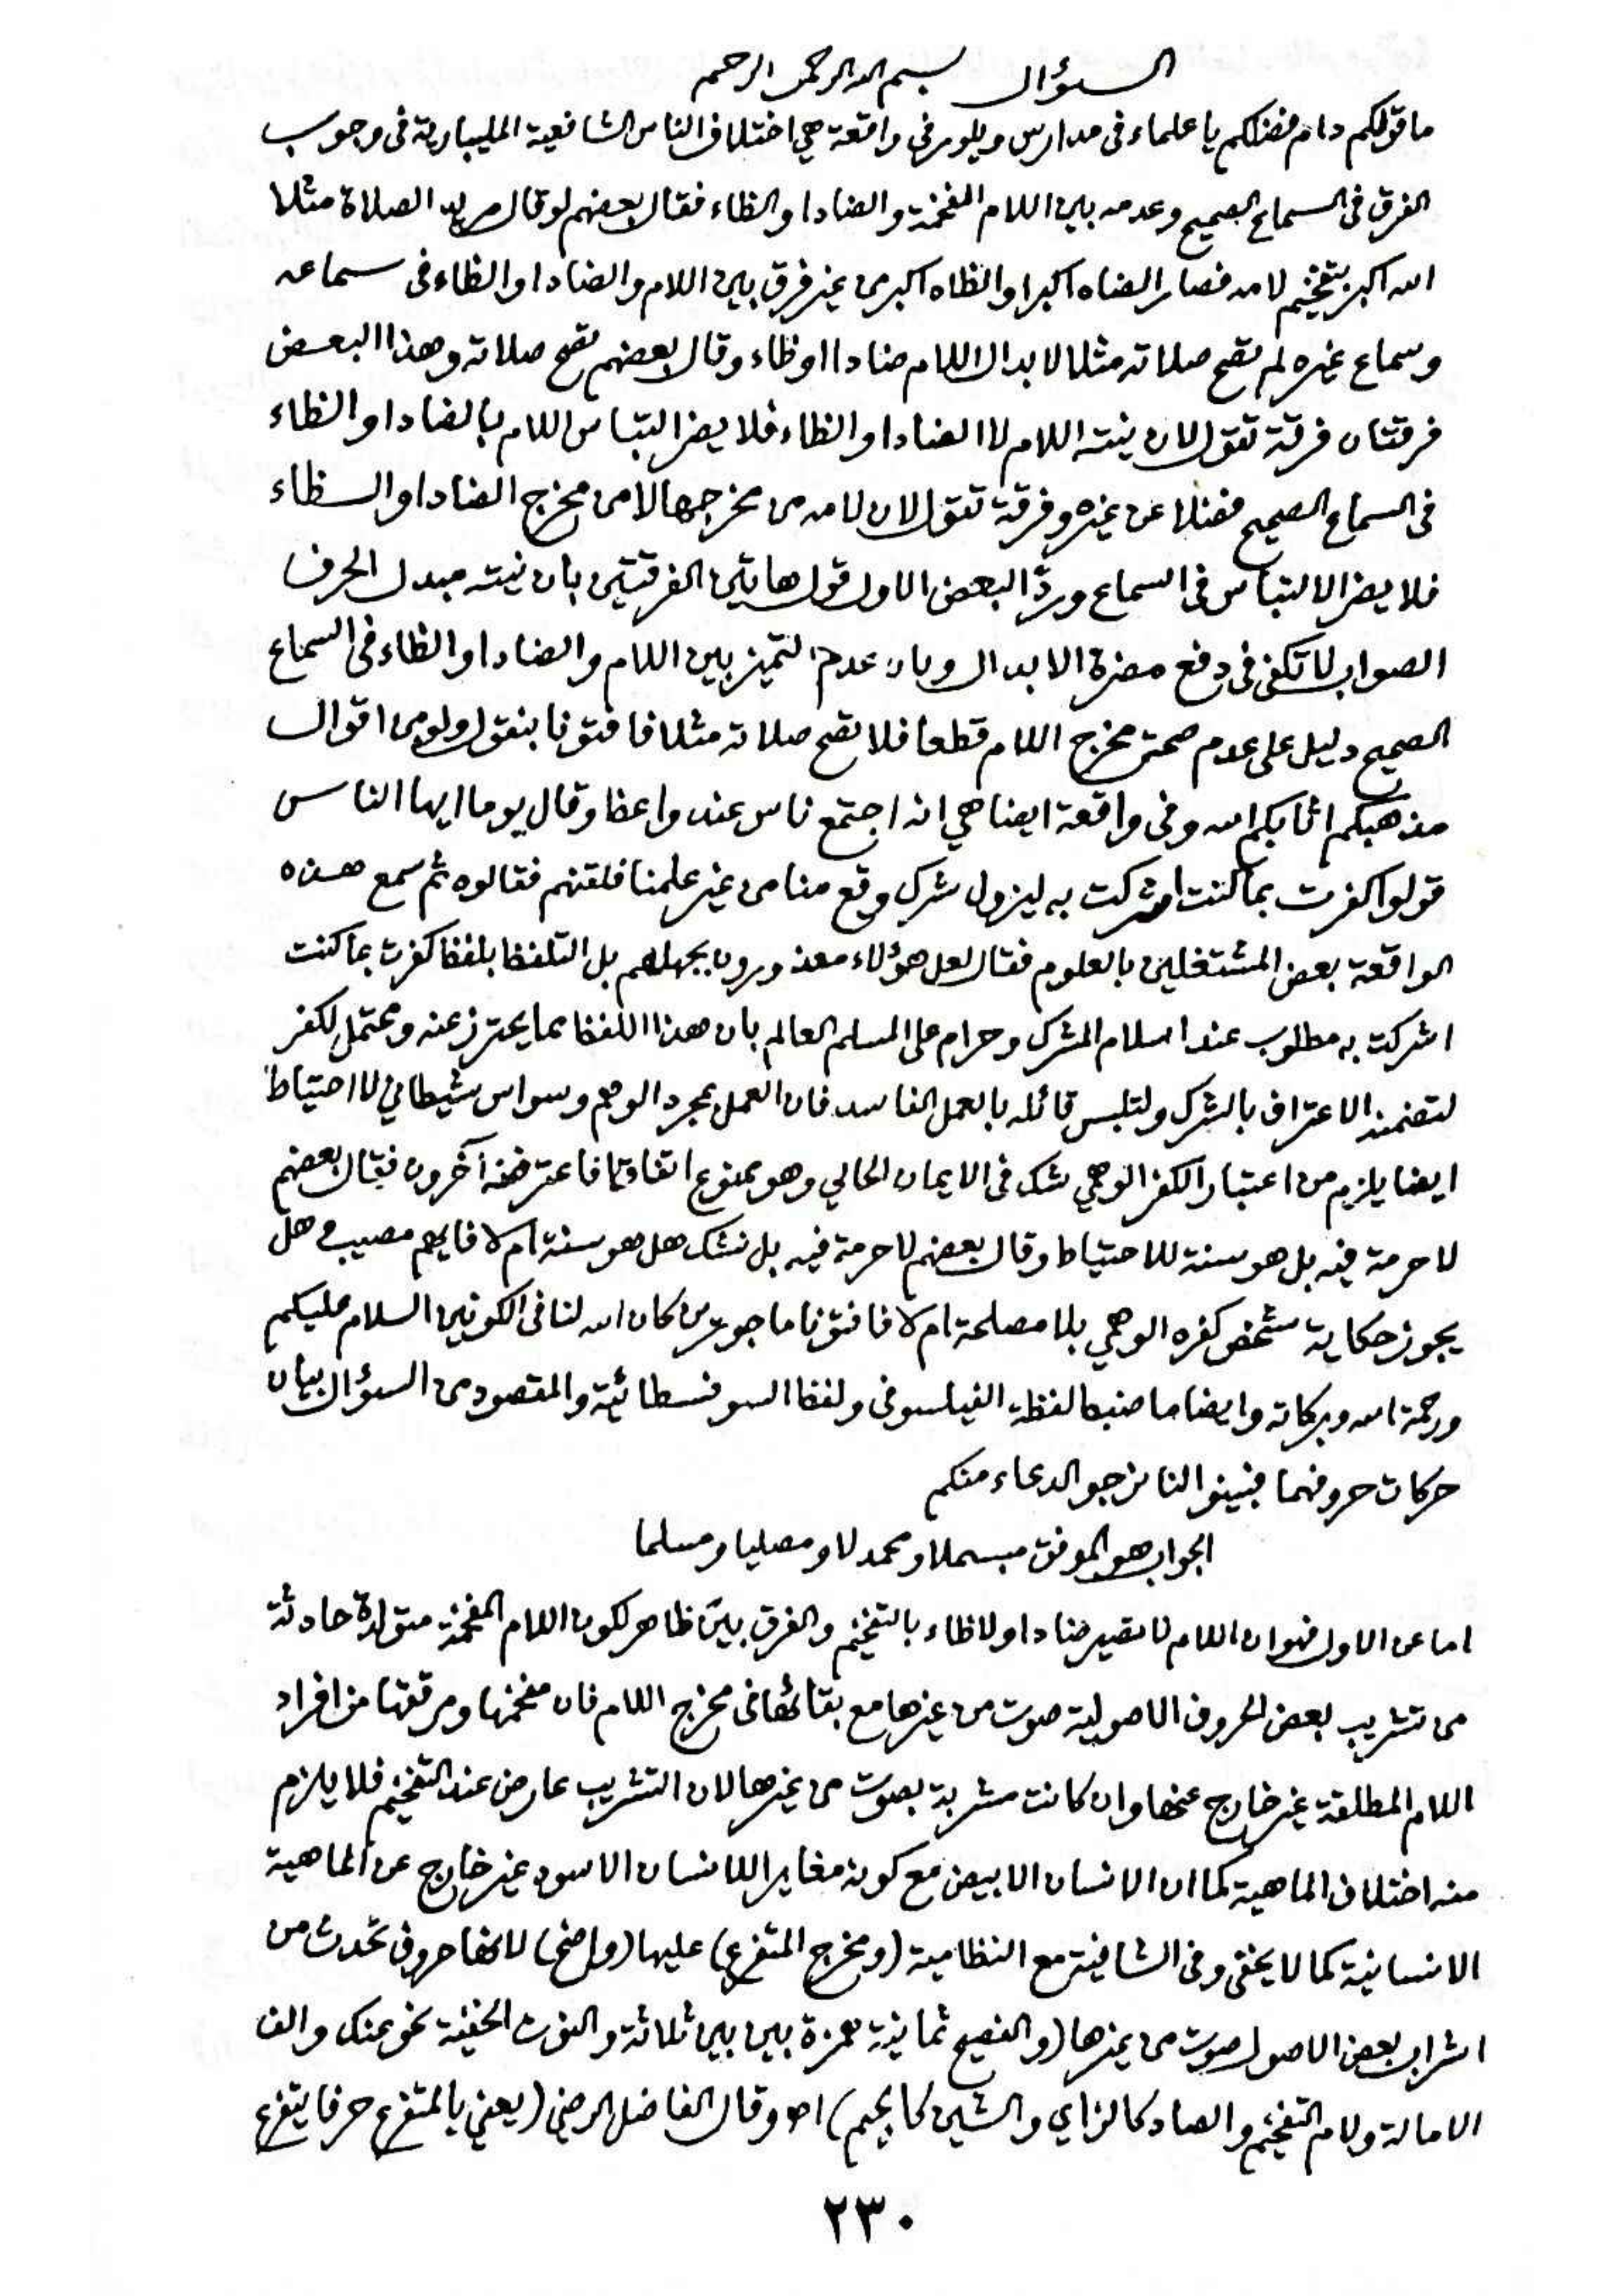 السؤال بسم الله الرحمن الرحيم
ما قولكم دام فضلكم يا علماء في مدارس ويلور في واقعة هي اختلاف الناس الشافعية المليبارية في وجوب
الفرق في السماع الصحيح وعدمه بين اللام المفخمة والضاد او الظاء فقال بعضهم لو قال مريد الصلاة مثلا
الله اكبر بتفخيم لامه فصار الضاه اكبر او الظاه اكبر من غير فرق بين اللام والضاد او الظاء في سماعه
وسماع غيره لم تصح صلاته مثلا لابدال اللام ضادا او ظاء وقال بعضهم تصح صلاته وهذا البعض
فرقتان فرقة تقول لان نيته اللام لا الضاد او الظاء فلا يضر التباس اللام بالضاد او الظاء
في السماع الصحيح فضلا عن غيره وفرقة تقول لان لامه من مخرجها لا من مخرج الضاد او الظاء
فلا يضر الالتباس في السماع ورد البعض الاول قول هاتين الفرقتين بان نيته مبدل الحرف
الصواب لا تكفي في دفع مضرة الابدال وبان عدم التميز بين اللام والضاد او الظاء في السماع
الصحيح دليل على عدم صحة مخرج اللام قطعا فلا تصح صلاته مثلا فافتونا بنقول ولو من اقوال
مذهبكم اثابكم الله وفي واقعة ايضا هي انه اجتمع ناس عند واعظ وقال يوما ايها الناس
قولوا كفرت بما كنت اشركت به ليزول شرك وقع منا من غير علمنا فلقنهم فقالوه ثم سمع هذه
الواقعة بعض المشتغلين بالعلوم فقال لعل هؤلاء معذورون بجهلهم بل التلفظ بلفظ كفرت بما كنت
اشركت به مطلوب عند اسلام المشرك وحرام على المسلم العالم بان هذا اللفظ مما يحترز عنه ومحتمل لكفر
لتضمنه الاعتراف بالشرك ولتلبس قائله بالعمل الفاسد فان العمل بمجرد الوهم وسواس شيطاني لا احتياط
ايضا يلزم من اعتبار الكفر الوهمي شك في الايمان الحالي وهو ممنوع اتفاقا فاعترضه آخرون فقال بعضهم
لا حرمة فيه بل هو سنة للاحتياط وقال بعضهم لا حرمة فيه بل نشك هل هو سنة ام لا فايهم مصيب وهل
يجوز حكاية شخص كفره الوهمي بلا مصلحة ام لا فافتونا ماجورين كان الله لنا في الكونين السلام عليكم
ورحمة الله وبركاته وايضا ما ضبط لفظة الفيلسوفي ولفظ السوفسطائية والمقصود من السؤال بيان
حركات حروفهما فبينوا لنا نرجو الدعاء منكم
الجواب هو الموفق مبسملا ومحمدلا ومصليا ومسلما
اما عن الاول فهو ان اللام لا تصير ضادا ولا ظاء بالتفخيم والفرق بيّن ظاهر لكون اللام المفخمة متولدة حادثة
من تشريب بعض الحروف الاصولية صوت من غيرها مع بقائها في مخرج اللام فان مفخمها ومرققها من افراد
اللام المطلقة غير خارج عنها وان كانت مشربة بصوت من غيرها لان التشريب عارض عند التفخيم فلا يلزم
منه اختلاف الماهية كما ان الانسان الابيض مع كونه مغايرا للانسان الاسود غير خارج عن الماهية
الانسانية كما لا يخفى وفي الشافية مع النظامية (ومخرج المتفرع) عليها (واضح) لانها حروف تحدث من
اشراب بعض الاصول صوت من غيرها (والفصيح ثمانية همزة بين بين ثلاثة والنون الخفية نحو عنك والف
الامالة ولام التفخيم والصاد كالزاي والشين كالجيم) اه وقال الفاضل الرضي (يعني بالمتفرع حرفا يتفرع
٢٣٠